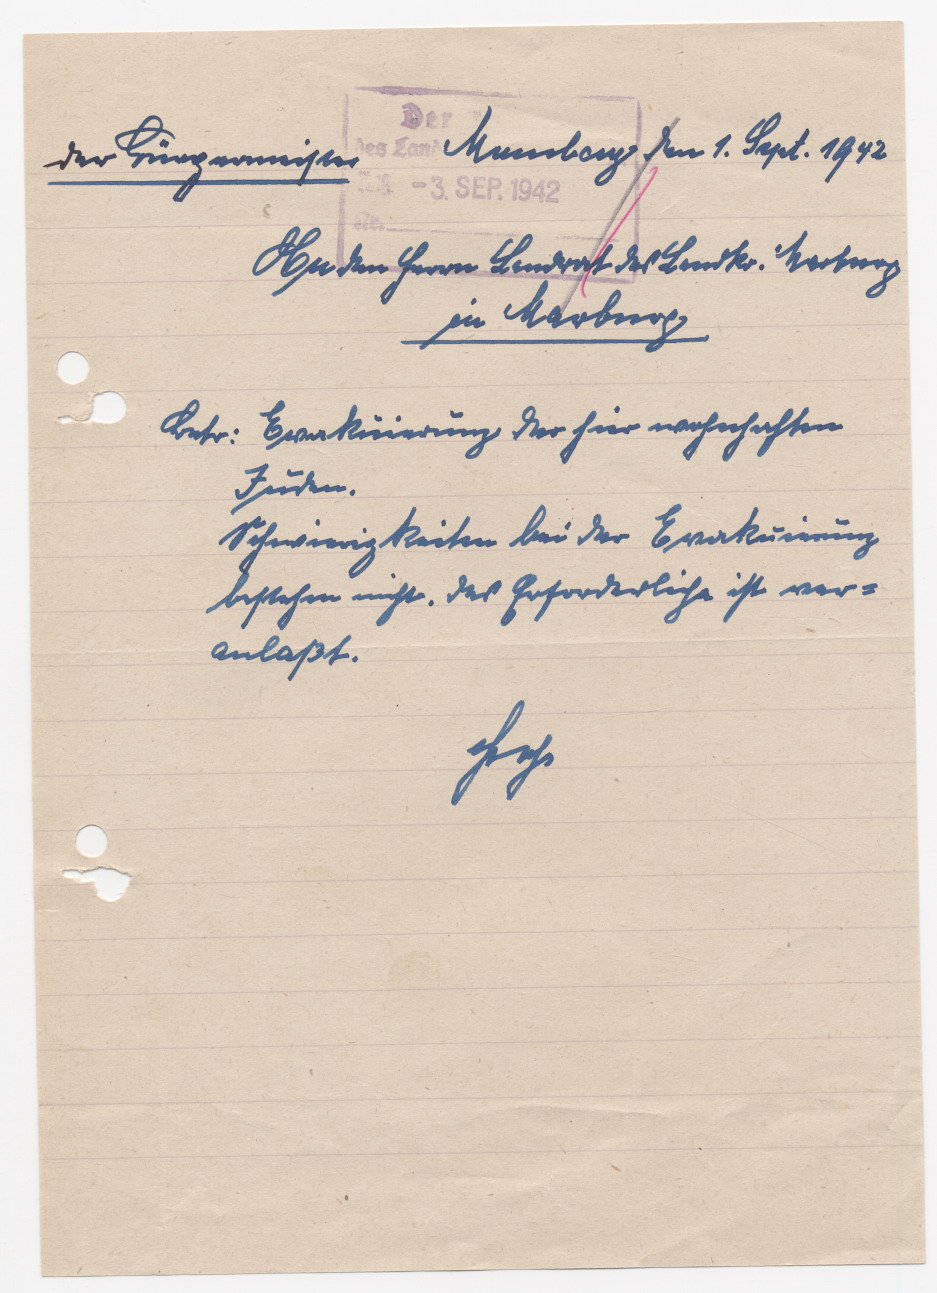 Der
des Land
-3. SEP. 1942
Nr.
der Bürgermeister
Momberg, den 1. Sept. 1942
An den Herrn Landrat des Landkr. Marburg
in Marburg
Betr: Evakuierung der hier wohnhaften
Juden.
Schwierigkeiten bei der Evakuierung
bestehen nicht. das Erforderliche ist ver=
anlaßt.